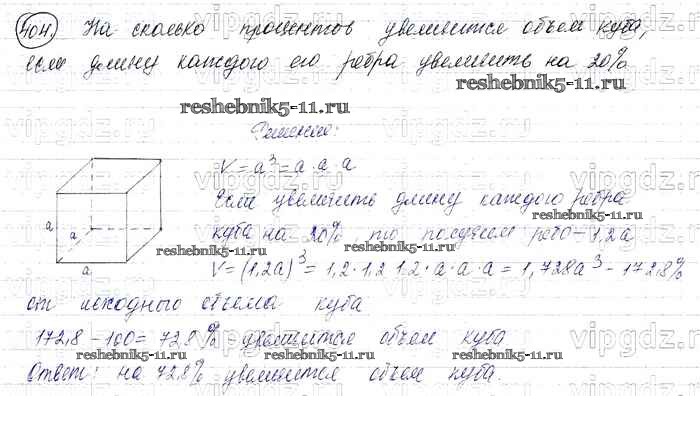 404. На сколько процентов увеличится объем куба,
если длину каждого его ребра увеличить на 20%
reshebnik5-11.ru
reshebnik5-11.ru
Решение:
V = a³ = a · a · a
Если увеличить длину каждого ребра
куба на 20%, то получим ребро – 1,2a
reshebnik5-11.ru
reshebnik5-11.ru
V = (1,2a)³ = 1,2 · 1,2 1,2 · a · a · a = 1,728a³ – 172,8%
a
a
a
от исходного объема куба
172,8 – 100 = 72,8% увеличится объем куба
reshebnik5-11.ru
reshebnik5-11.ru
Ответ: на 72,8% увеличится объем куба.
vipgdz.ru